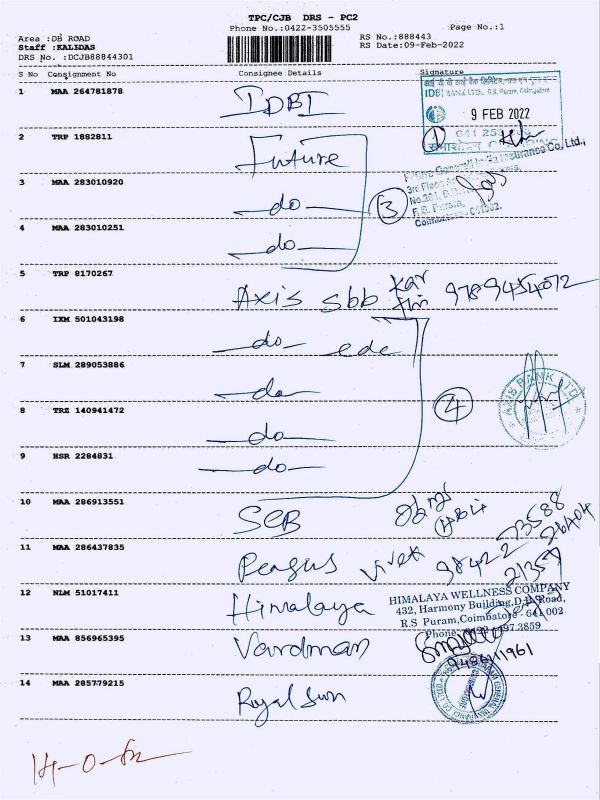 TPC/CJB DRS - PC2
Phone No.:0422-3505555 Page No.:1
Area :DB ROAD RS No.:888443
Staff :KALIDAS RS Date:09-Feb-2022
DRS No. :DCJB88844301
S No Consignment No Consignee Details Signature
1 MAA 264781878 IDBI
IDBI BANK LTD., R.S. Puram, Coimbatore
9 FEB 2022
1
2 TRP 1882811 Future
Future Generali India Insurance Co. Ltd.,
3rd Floor,
3 MAA 283010920 -do- 3
R.S. Puram,
4 MAA 283010251 -do-
5 TRP 8170267 Axis sbb 9789454072
6 IXM 501043198 -do- edc
7 SLM 289053886 -do-
AXIS BANK LTD
8 TRZ 140941472 -do- 4
9 HSR 2284831 -do-
10 MAA 286913551 SCB
11 MAA 286437835 Pegasus Vivek 98422
12 NLM 51017411 Himalaya
HIMALAYA WELLNESS COMPANY
432, Harmony Building, D.B.Road,
R.S Puram,Coimbatore - 641 002
13 MAA 856965395 Vardman
9486111961
14 MAA 285779215 Royal Sun
14-0-